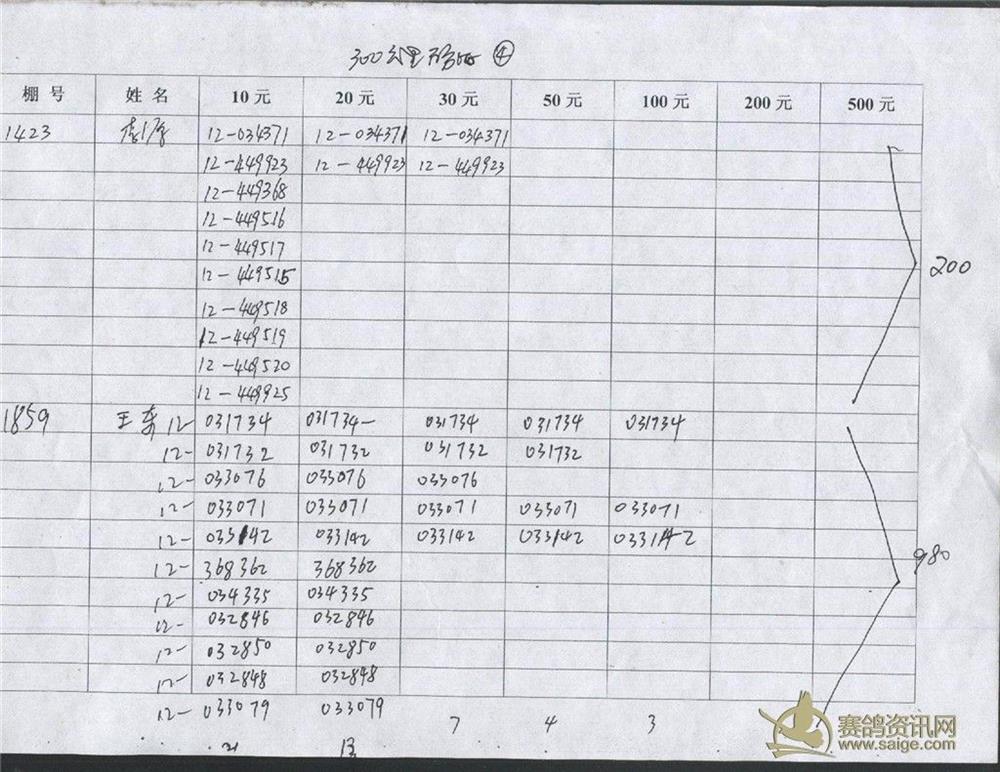 300公里 ④
棚号 姓名 10元 20元 30元 50元 100元 200元 500元
1423 12-034371 12-034371 12-034371
12-449923 12-449923 12-449923
12-449368
12-449516
12-449517
12-449515
12-449518
12-449519
12-449520
12-449925
200
1859 王 12- 031734 031734 031734 031734 031734
12- 031732 031732 031732 031732
12- 033076 033076 033076
12- 033071 033071 033071 033071 033071
12- 033142 033142 033142 033142 033142
12- 368362 368362
12- 034335 034335
12- 032846 032846
12- 032850 032850
12- 032848 032848
12- 033079 033079
980
7 4 3
赛鸽资讯网
www.saige.com